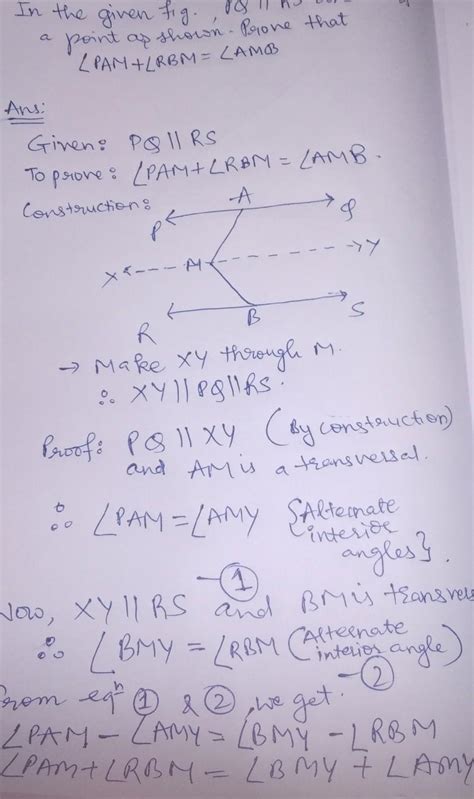 In the given fig., PQ || RS
a point as shown. Prove that
∠PAM+∠RBM=∠AMB
Ans:
Given: PQ || RS
To prove: ∠PAM+∠RBM = ∠AMB.
Construction:
A
P
Q
X
M
Y
B
S
R
→ Make XY through M.
∴ XY || PQ || RS.
Proof: PQ || XY (By construction)
and AM is a transversal.
∴ ∠PAM = ∠AMY {Alternate
interior
angles}.
—①
Now, XY || RS and BM is transvers
∴ ∠BMY = ∠RBM (Alternate
interior angle)
—②
From eqⁿ ① & ②, we get.
∠PAM - ∠AMY = ∠BMY - ∠RBM
∠PAM + ∠RBM = ∠BMY + ∠AMY